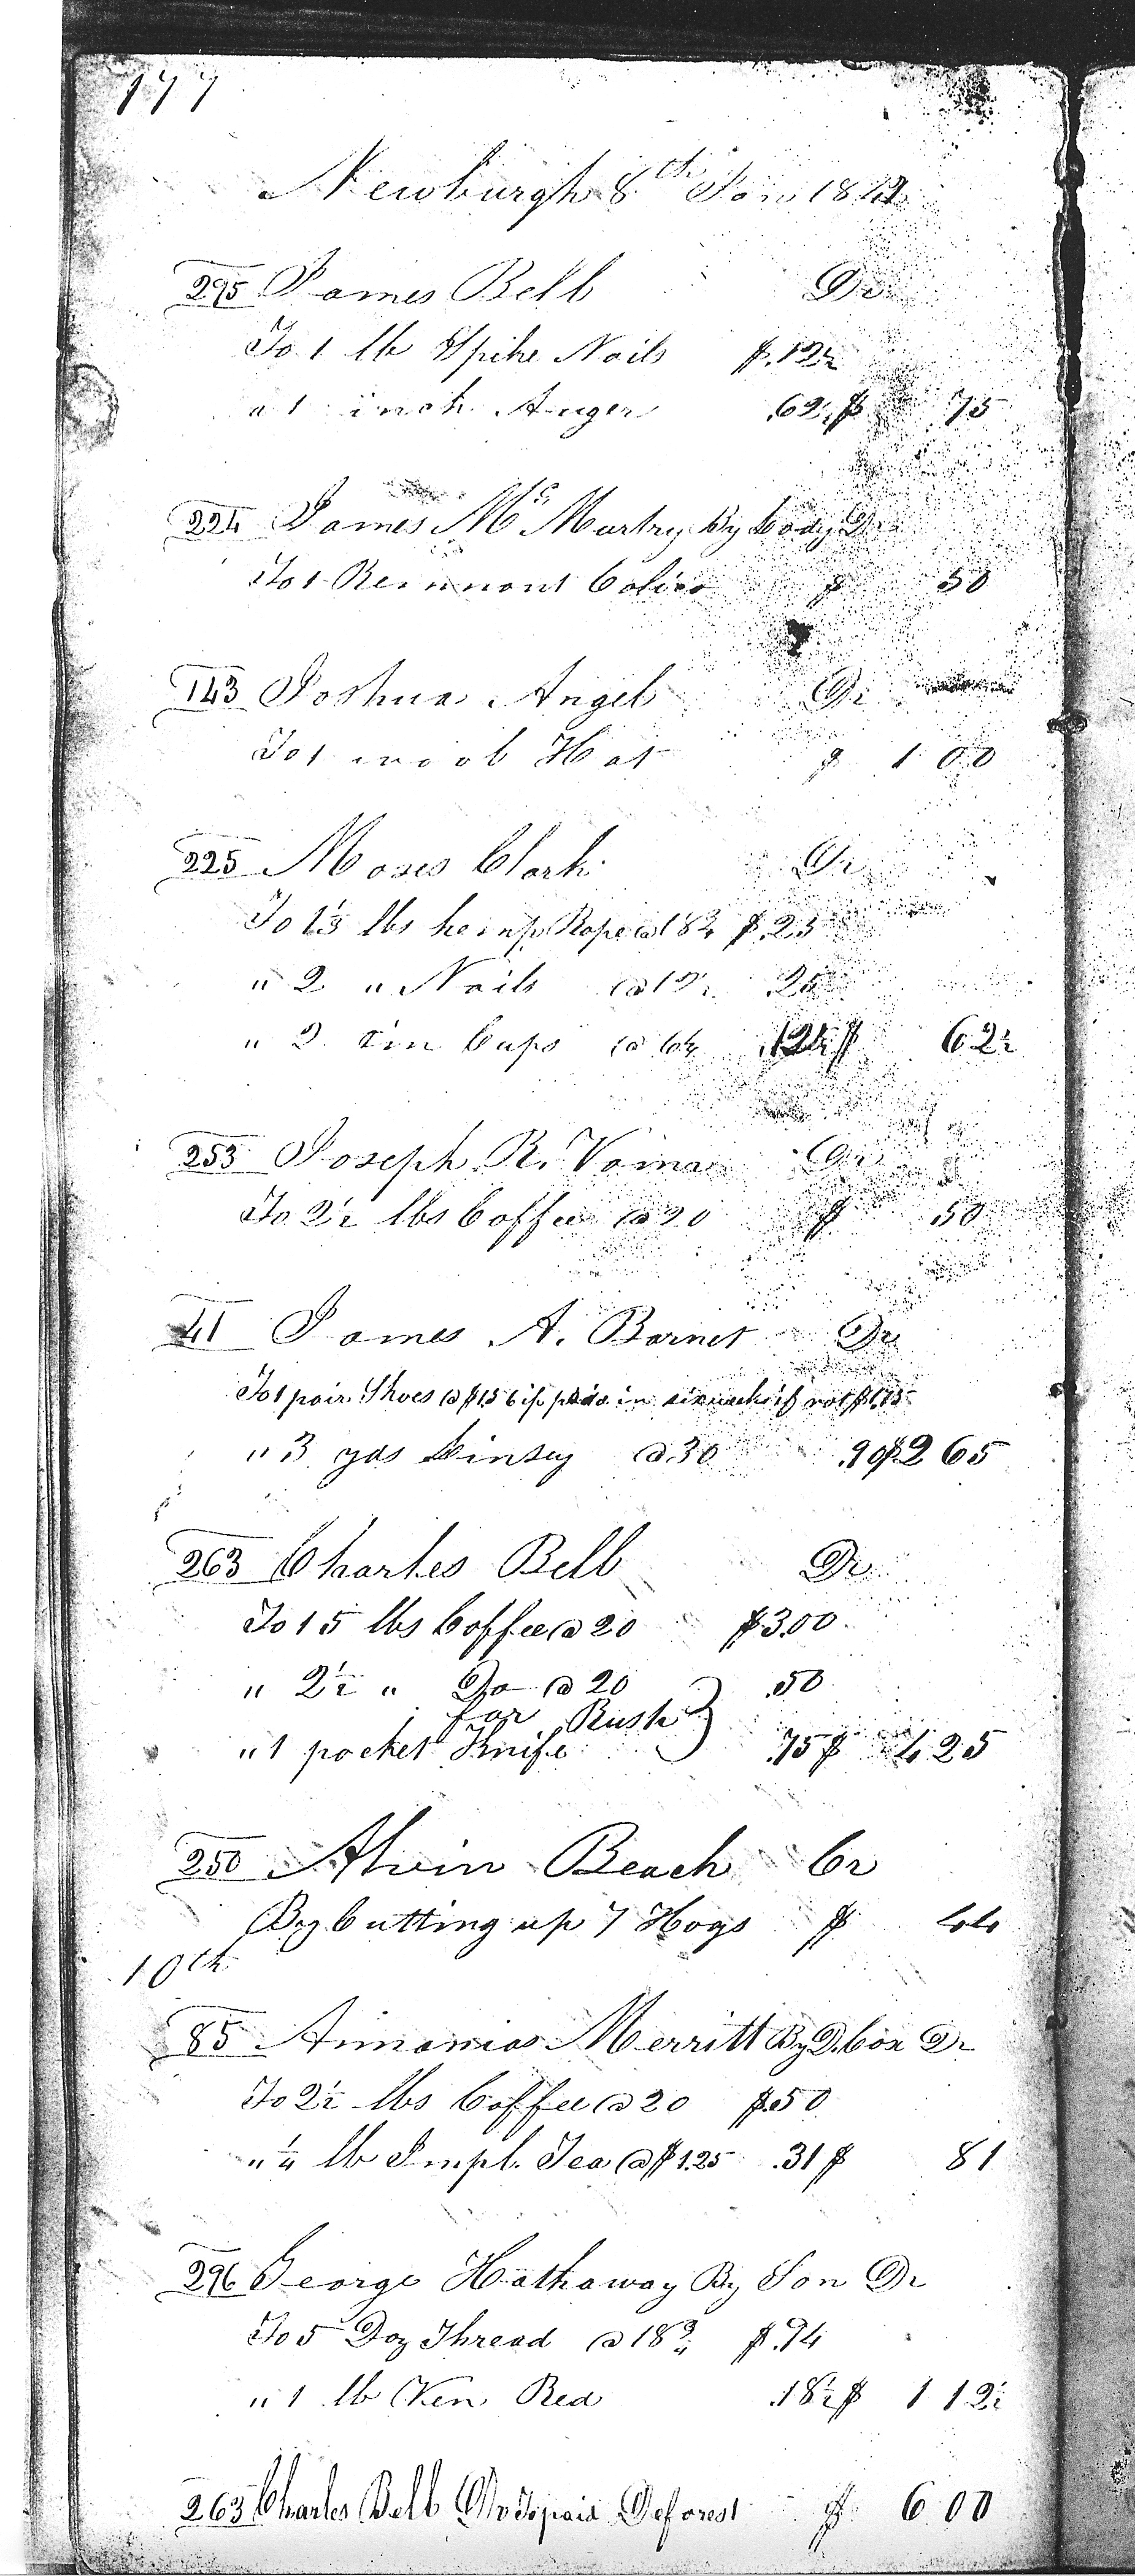 177
Newburgh 8th Jan 1842
295 James Bell Dr
To 1 lb Spike Nails $.12½
" 1 inch Auger .62½ $ 75
224 James McMurtry By Cody Dr
To 1 Remnant Calico $ 50
143 Joshua Angel Dr
To 1 wool Hat $ 1 00
225 Moses Clark Dr
To 1⅓ lbs hemp Rope @ 18¾ $.25
" 2 " Nails @ 12½ 25
" 2 tin Cups @ 6¼ .12½ $ 62½
253 Joseph R. Dr
To 2½ lbs Coffee @ 20 $ .50
41 James A. Barnet Dr
To 1 pair Shoes @ $1.56 if paid in six weeks if not $1.75
" 3 yds Linsey @ 30 .90 $2 65
263 Charles Bell Dr
To 15 lbs Coffee @ 20 $3.00
" 2½ " Do @ 20 .50
for Rush
" 1 pocket Knife .75 $ 4 25
250 Alvin Beach Cr
By Cutting up 7 Hogs $ 44
10th
85 Annanias Merritt By D. Cox Dr
To 2½ lbs Coffee @ 20 $.50
" ¼ lb Impl. Tea @ $1.25 .31 $ 81
296 George Hathaway By Son Dr
To 5 Doz Thread @ 18¾ $.94
" 1 lb Ven Red .18½ $ 1 12½
263 Charles Bell Dr To paid Deforest $ 6 00